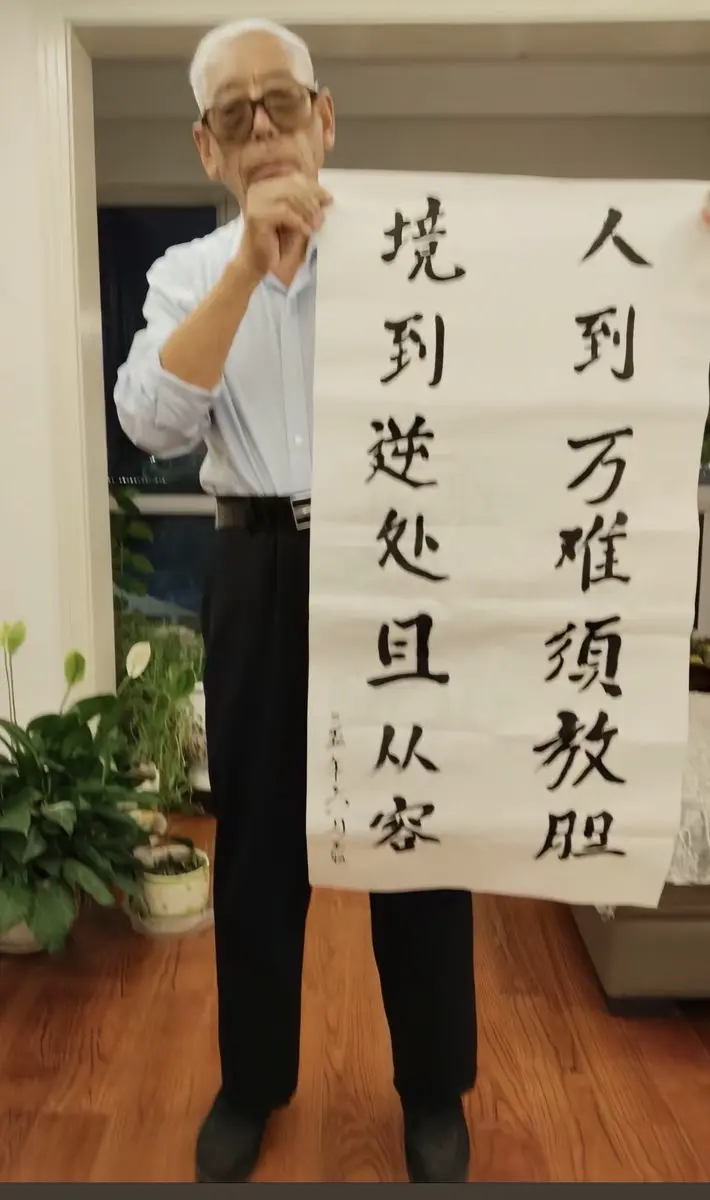 人到万难须教胆
境到逆处且从容